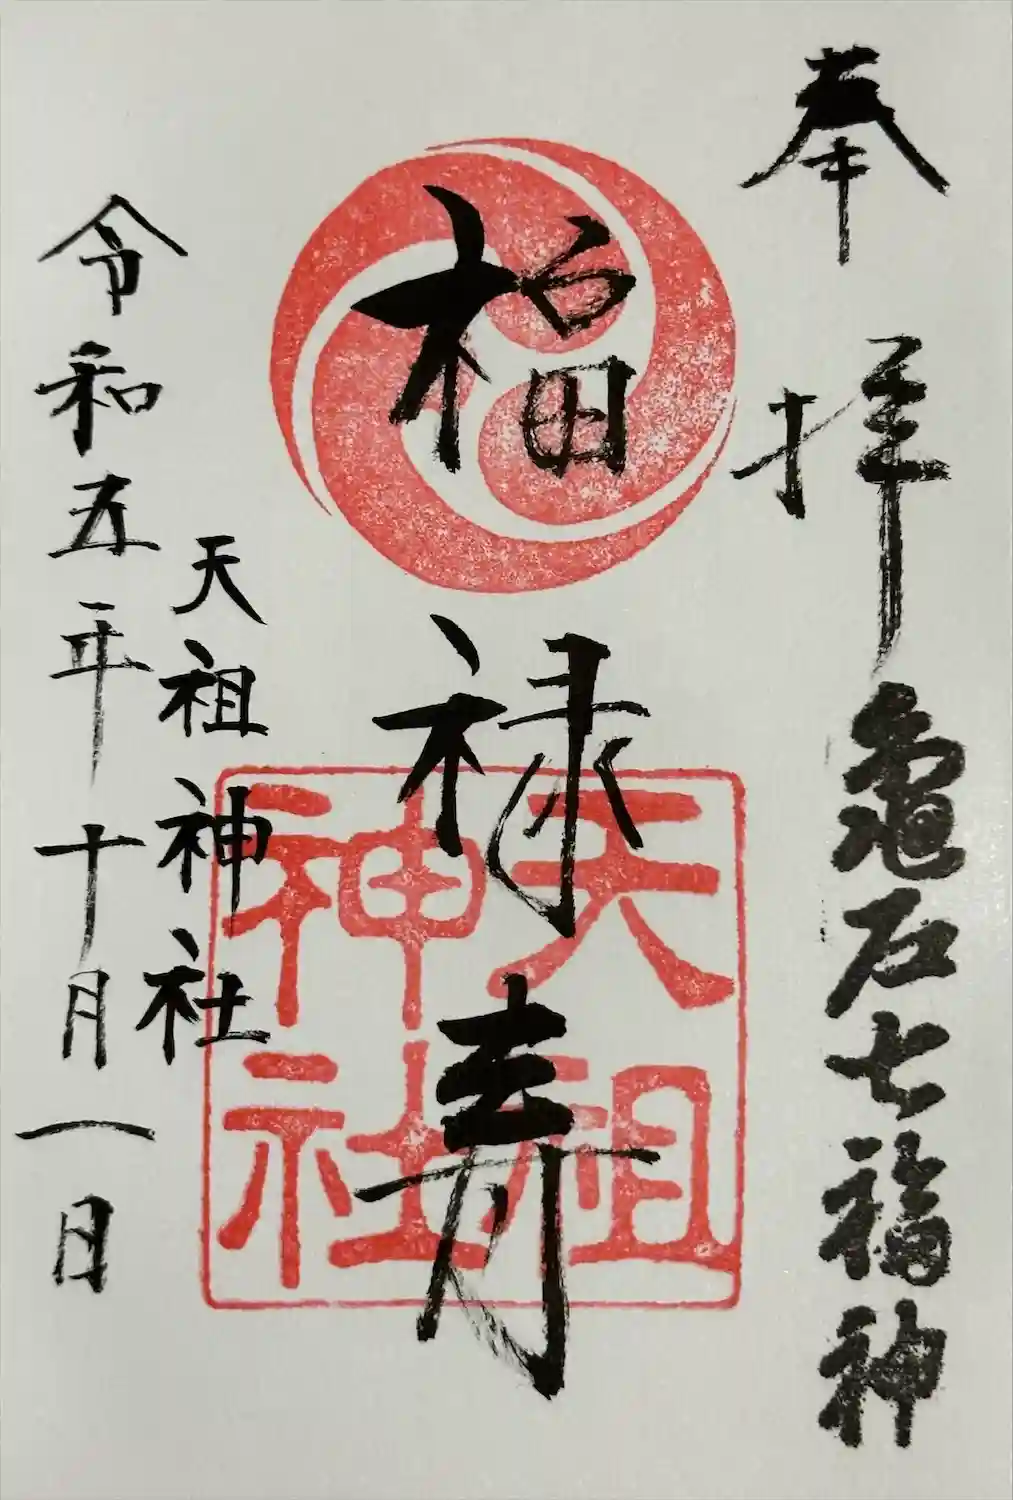 奉拝
亀戸七福神
福禄寿
天祖神社
天祖神社
令和五年十月一日